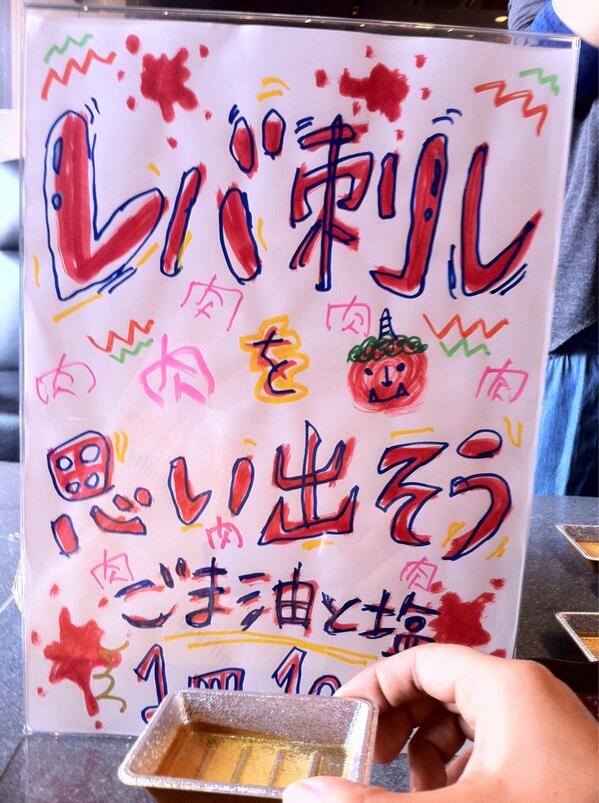 レバ刺し
肉 肉
肉 肉 を 肉
思い出そう
肉
肉 肉
ごま油と塩
1皿